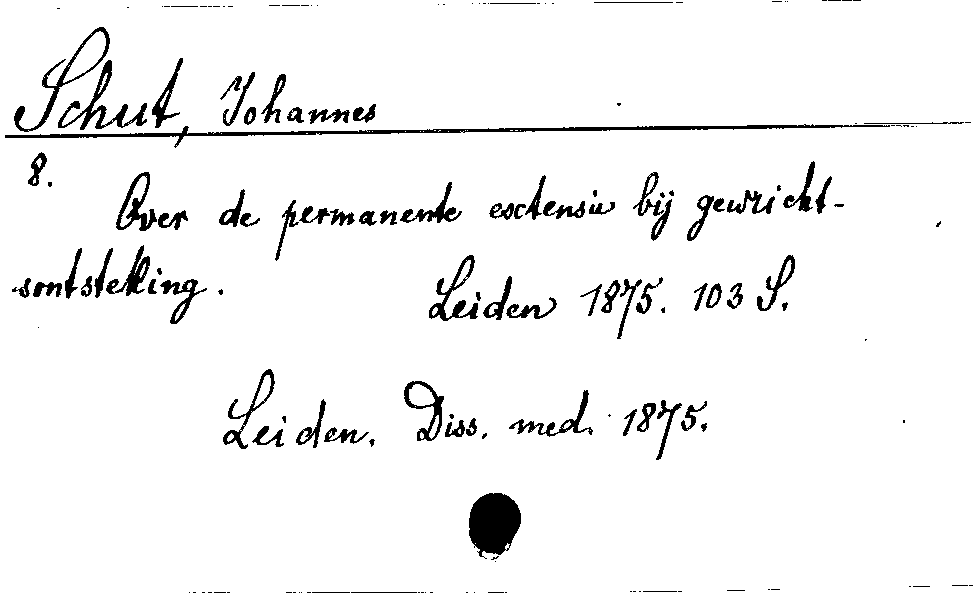 Schut, Johannes
8.
Over de permanente esctensie bij gewricht-
sontstekling.
Leiden 1875. 103 S.
Leiden. Diss. med. 1875.